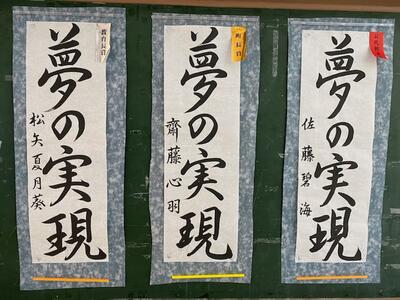 教育長賞
夢の実現
松矢夏月葵
町長賞
夢の実現
齋藤心羽
夢の実現
佐藤碧海